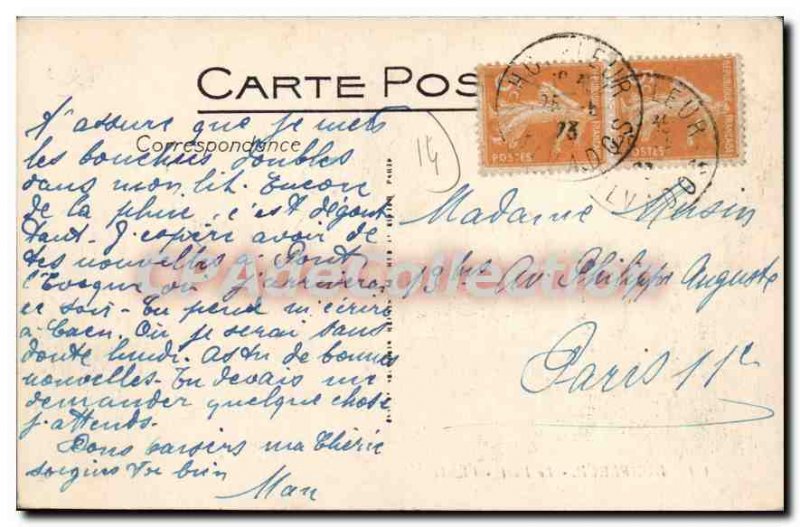 CARTE POS
Correspondance
14
t'assure que je mets
les bouchées doubles
dans mon lit. Encore
de la pluie, c'est dégout
tant. J'espère avoir de
tes nouvelles à Pont
l'Evêque où j'arriverai
ce soir. Tu peux m'écrire
à Caen. Où je serai sans
doute lundi. As tu de bonnes
nouvelles. Tu devais me
demander quelque chose
j'attends.
Bons baisers ma Chérie
soigne toi bien
HONFLEUR
CALVADOS
POSTES
POSTES
Madame Musin
13 bis Av Philippe Auguste
Paris 11e
CPADeCollection